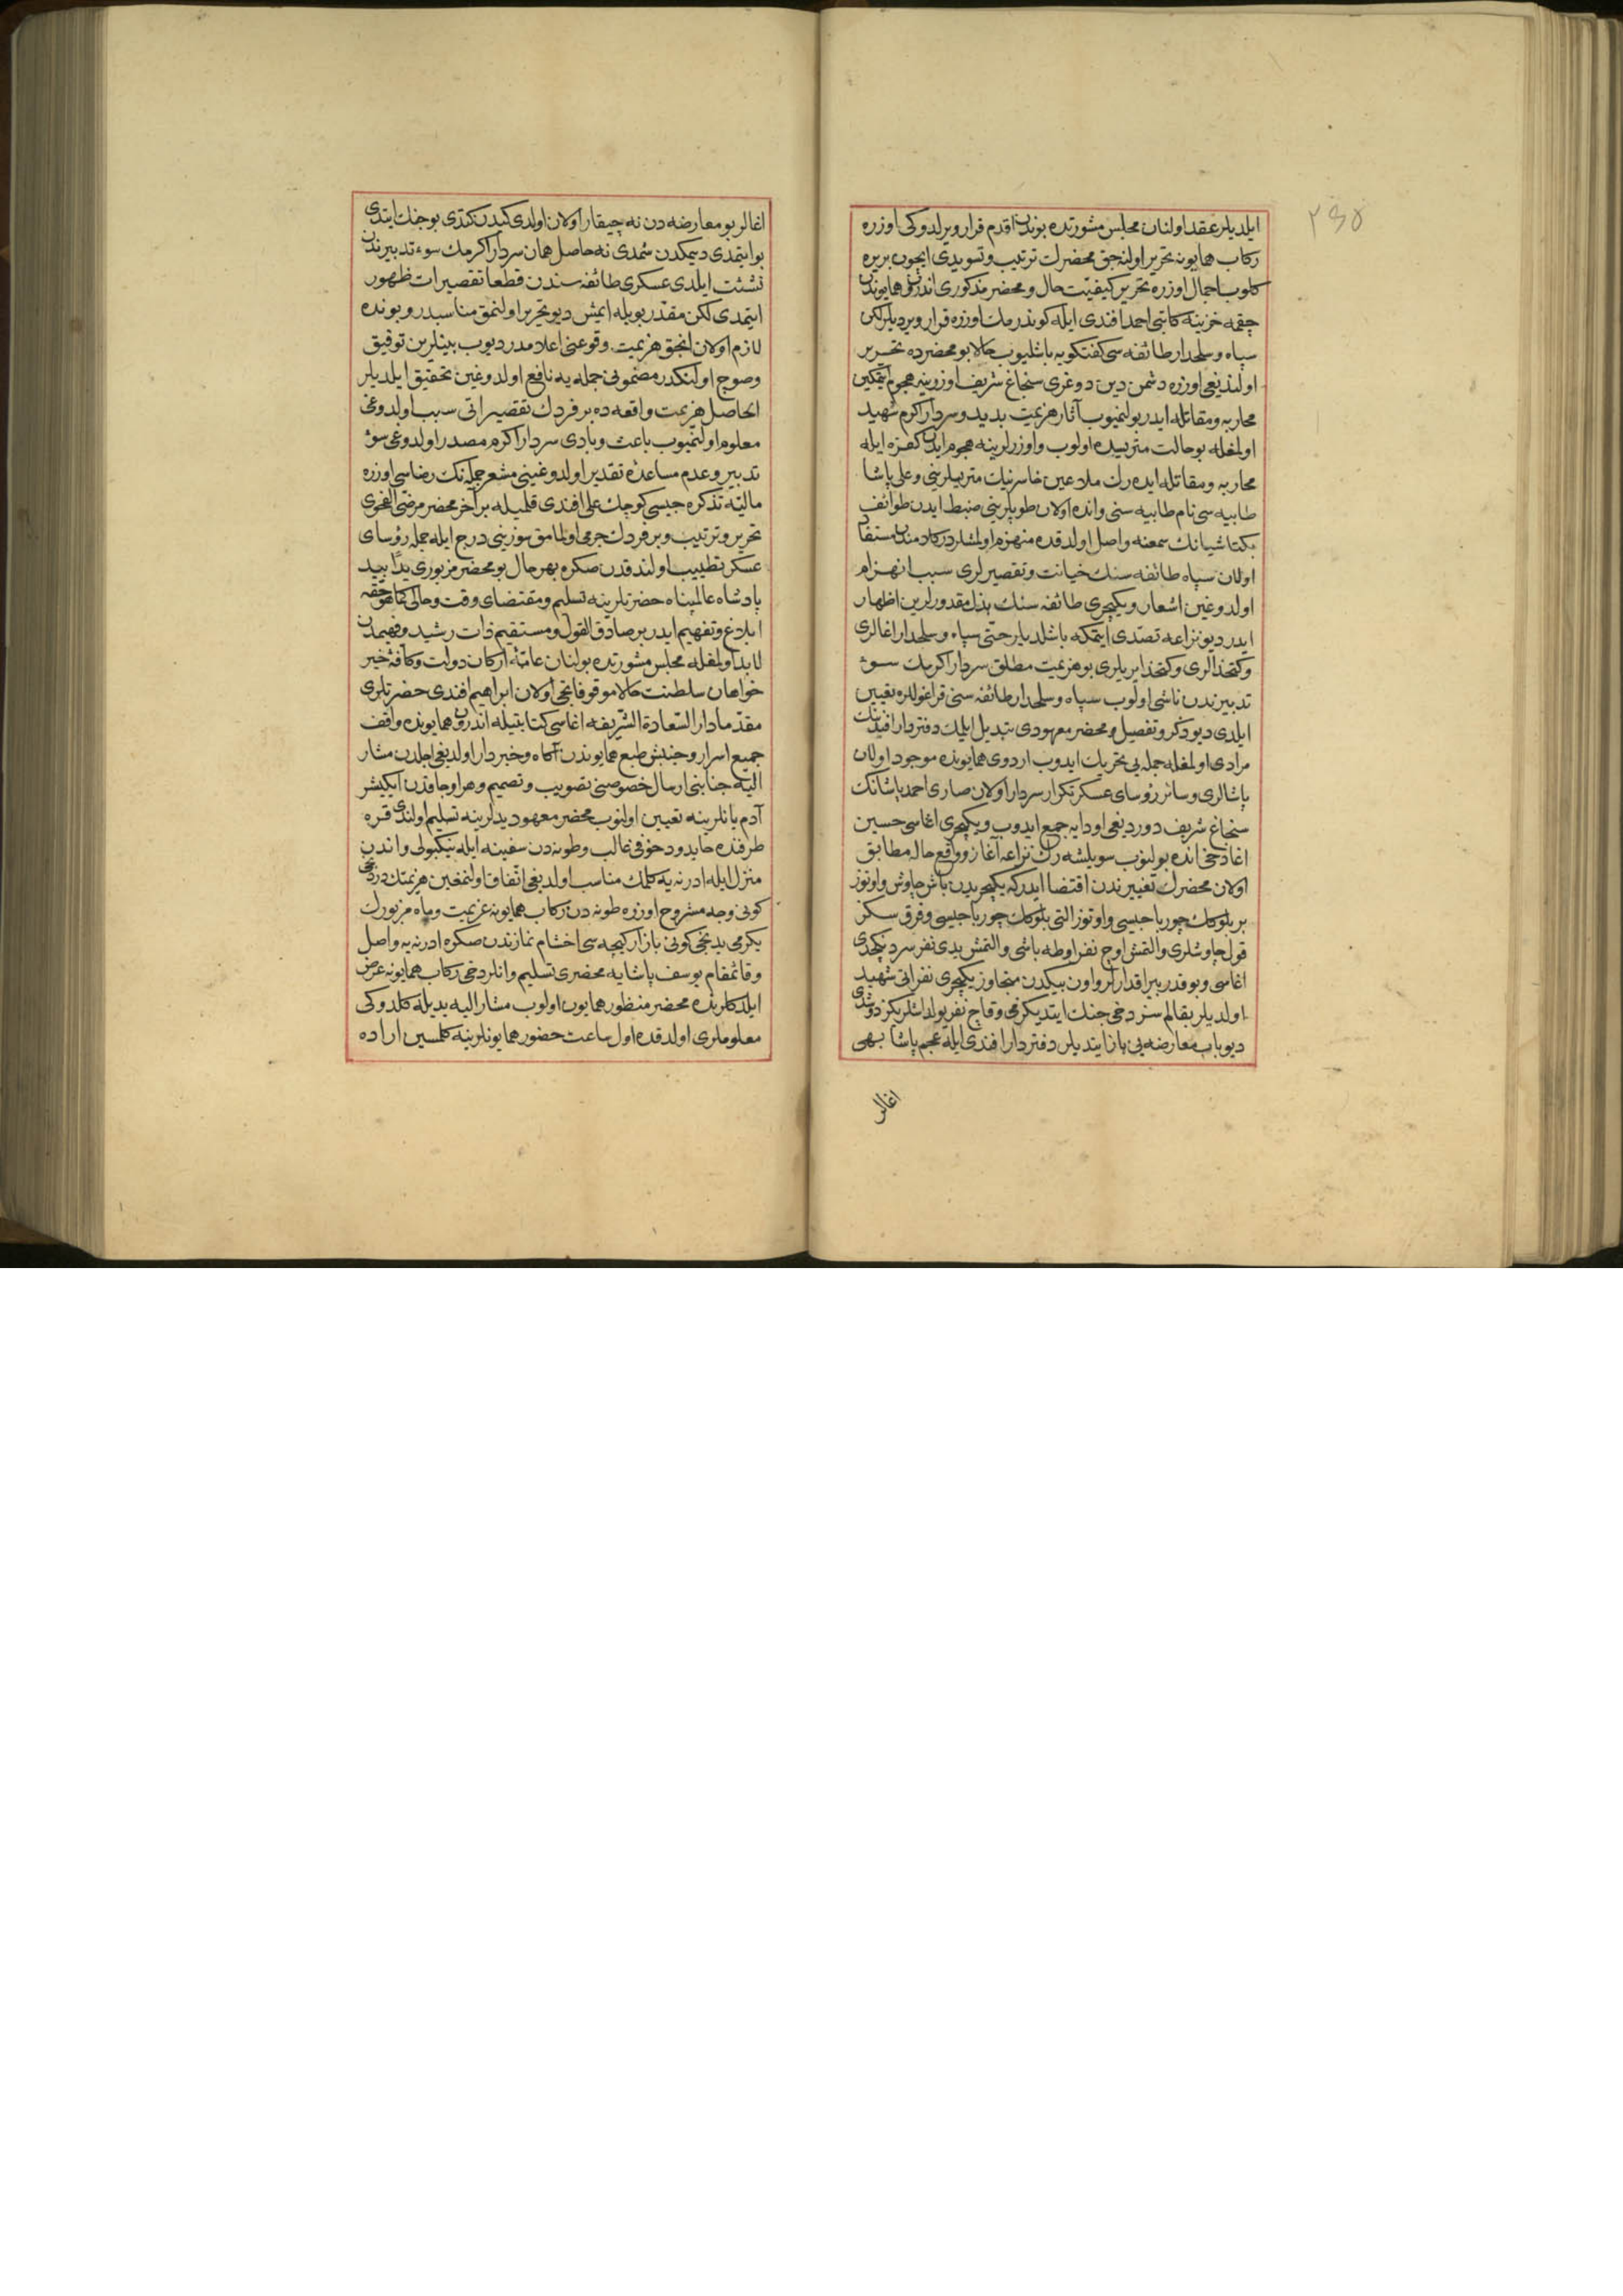 ٢٤٥
ايلديلر عقد اولنان مجلس مشورتده بوندن اقدم قرار ويرلدوكى اوزره
ركاب همايونه تحرير اولنه جق محضرك ترتيب و تسويدى ايچون بريره
كلوب اجمال اوزره تحرير كيفيت حال و محضر مذكورى اندرون همايوندن
چقمه خزينه كاتبى احمد افندى ايله كوندرمك اوزره قرار ويرديلر لكن
سپاه و سلحدار طائفه سى كفتكويه باشليوب حالا بو محضرده تحرير
اولنديغى اوزره دشمن دين دوغرى سنجاغ شريف اوزرينه هجوم ايتمكين
محاربه و مقاتله ايدر بولنميوب آثار هزيمت بديد و سردار اكرم شهيد
اولمغله بو حالت متريسده اولوب و اوزرلرينه هجوم ايدن كفره ايله
محاربه و مقاتله ايده رك ملاعين خاسرينك متريسلرينى و على پاشا
طابيه سى نام طابيه سنى و انده اولان طوپلرينى ضبط ايدن طوائف
بكتاشيانك سمعنه واصل اولدقده منهزم اولمشلردر كلامندن مستفاد
اولان سپاه طائفه سنك خيانت و تقصيرلرى سبب انهزام
اولدوغين اشعار و يكيچرى طائفه سنك بذل مقدورلرين اظهار
ايدر ديو نزاعه تصدى ايتمكه باشلديلر حتى سپاه و سلحدار اغالرى
و كتخدالرى و كتخدا يرلرى بو هزيمت مطلق سردار اكرمك سوء
تدبيرندن ناشى اولوب سپاه و سلحدار طائفه سنى قراغوللره تعيين
ايلدى ديو ذكر و تفصيل و محضر معهودى تبديل ايلمك دفتردار افندينك
مرادى اولمغله جمله يى تحريك ايدوب اردوى همايونده موجود اولان
پاشالرى و سائر رؤساى عسكر تكرار سردار اولان صارى احمد پاشانك
سنجاغ شريف دورديغى اودايه جمع ايدوب و يكيچرى اغاسى حسين
اغا دخى انده بولنوب سويلشه رك نزاعه آغاز و واقع حاله مطابق
اولان محضرك تغييرندن اقتضا ايدر كه يكيچريدن باش چاوش و اوتوز
بر بلوكك چورباجيسى و اوتوز التى بلوكك چورباجيسى و قرق سكز
قول چاوشلرى و التمش اوچ نفر اوطه باشى و التمش يدى نفر سردنكچدى
اغاسى و بو قدر بيراقدارلر و اون بيكدن متجاوز يكيچرى نفراتى شهيد
اولديلر بقالم سز دخى جنك ايتديكزمى و قاچ نفر يولداشلريكز دوشدى
ديو باب معارضه يى باز ايتديلر دفتردار افندى ايله عجم پاشا بهى
اغالر
اغالر بو معارضه دن نه چيقار اولان اولدى كيدن كتدى بو جنك ايتدى
بو ايتمدى ديمكدن شمدى نه حاصل همان سردار اكرمك سوء تدبيرندن
نشئت ايلدى عسكرى طائفه سندن قطعا تقصيرات ظهور
ايتمدى لكن مقدر بويله ايمش ديو تحرير اولنمق مناسبدر و بونده
لازم اولان انجق هزيمت وقوعنى اعلامدر ديوب بينلرين توفيق
و صوچ اولنكدر مضمونى جمله يه نافع اولدوغين تحقيق ايلديلر
الحاصل هزيمت واقعه ده بر فردك تقصيراتى سبب اولدوغى
معلوم اولنميوب باعث و بادى سردار اكرم مصدر اولدوغى سوء
تدبير و عدم مساعده تقدير اولدوغينى مشعر جمله نك رضاسى اوزره
ماليه تذكره جيسى كوچك على افندى قلميله بر آخر محضر مرضى الفحوى
تحرير و ترتيب و بر فردك جرمى اولمامق سوزينى درج ايله جمله رؤساى
عسكر تطييب اولندقدن صكره بهر حال بو محضر مزبورى يدا بيد
پادشاه عالمپناه حضرتلرينه تسليم و مقتضاى وقت و حالى كما هو حقه
ابلاغ و تفهيم ايدر بر صادق القول و مستقيم ذات رشيد و فهيمدن
لابد اولمغله مجلس مشورتده بولنان عامه اركان دولت و كافه خير
خواهان سلطنت حالا موقوفاتجى اولان ابراهيم افندى حضرتلرى
مقدما دار السعادة الشريفه اغاسى كتابتيله اندرون همايونده واقف
جميع اسرار و جنبش طبع همايوندن آكاه و خبردار اولديغى اجلدن مشار
اليه جنابنى ارسال خصوصنى تصويب و تصميم و هر اوجاقدن ايكيشر
آدم يانلرينه تعيين اولنوب محضر معهود يدلرينه تسليم اولندى قره
طرفنده حايدود خوفى غالب و طونه دن سفينه ايله نيكبولى و اندن
منزل ايله ادرنه يه كلمك مناسب اولديغى اتفاق اولنمغين هزيمتك دردنجى
كونى وجه مشروح اوزره طونه دن ركاب همايونه عزيمت و ماه مزبورك
يكرمى يدنجى كونى بازار كيجه سى اخشام نمازندن صكره ادرنه يه واصل
و قائمقام يوسف پاشايه محضرى تسليم و انلر دخى ركاب همايونه عرض
ايلدكلرنده محضر منظور همايون اولوب مشار اليه يديله كلدوكى
معلوملرى اولدقده اول ساعت حضور همايونلرينه كلمسين اراده